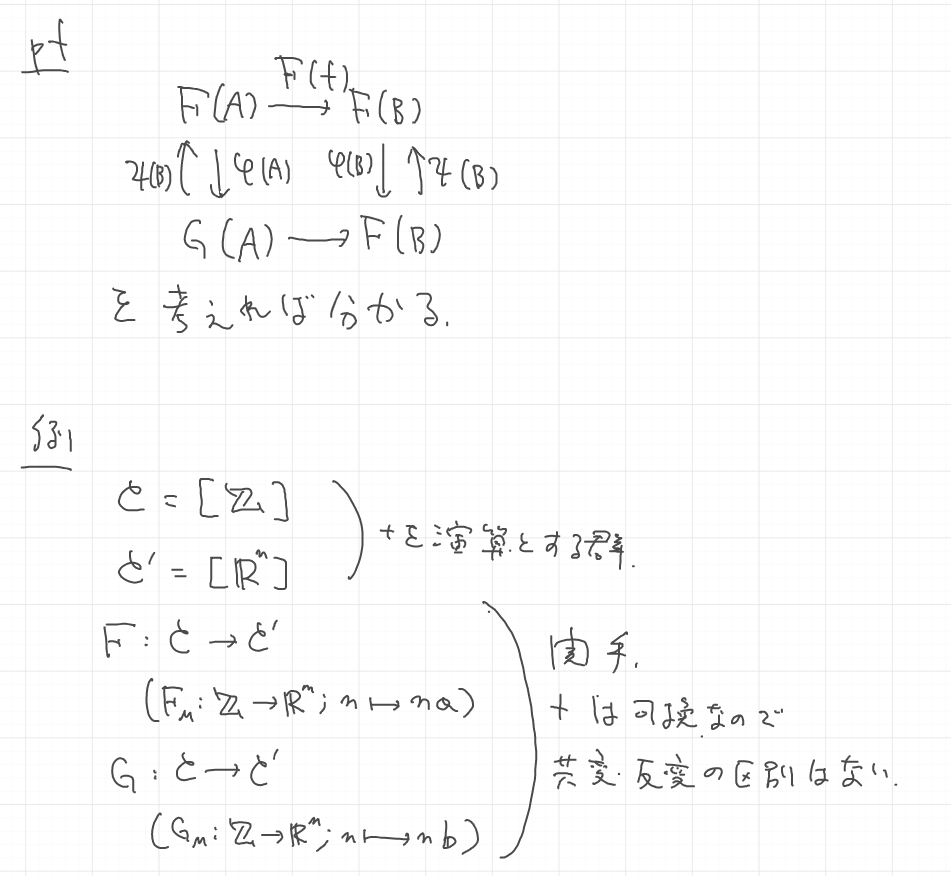 pf
F(A) → F(B) F(f)
ψ(B) ↑ ↓ φ(A) φ(B) ↓ ↑ ψ(B)
G(A) → F(B)
を考えれば分かる.
例1
C = [ℤ]
C' = [ℝⁿ]
+を演算とする群.
F : C → C'
(F_M : ℤ → ℝⁿ ; n ↦ na)
G : C → C'
(G_M : ℤ → ℝⁿ ; n ↦ nb)
関手.
+は可換なので
共変・反変の区別はない.